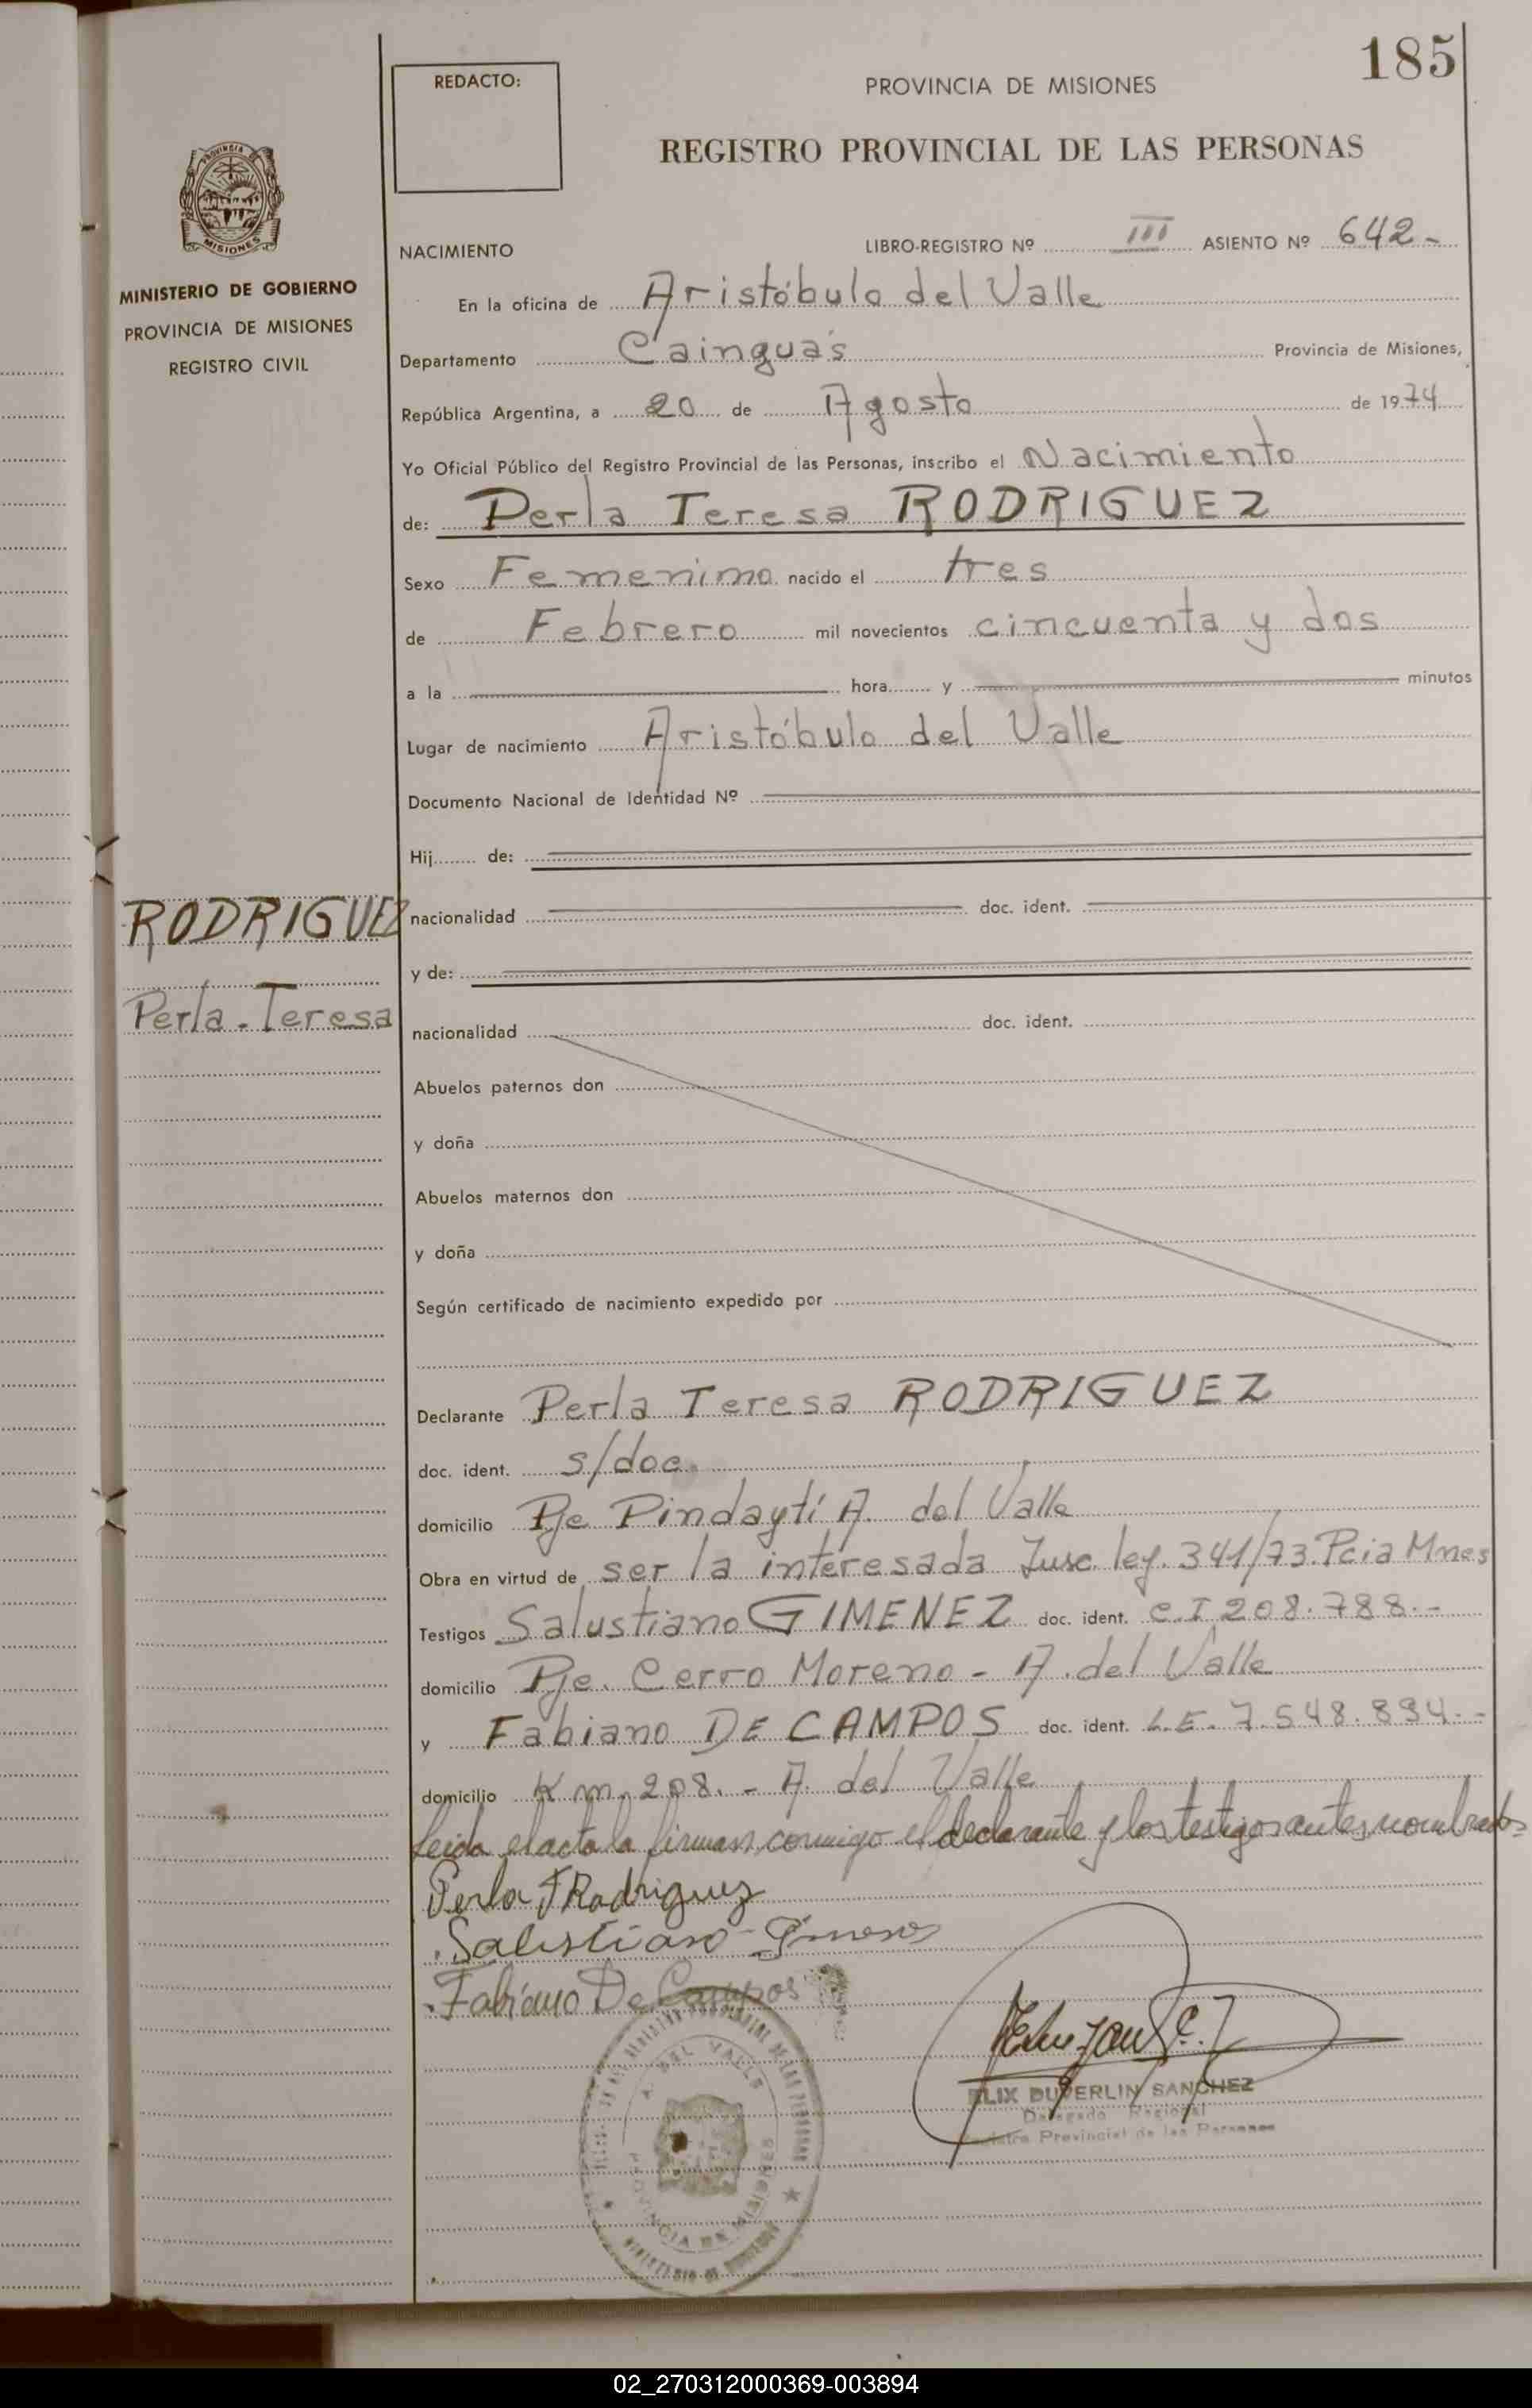 185
REDACTO:
PROVINCIA DE MISIONES
REGISTRO PROVINCIAL DE LAS PERSONAS
PROVINCIA
MISIONES
MINISTERIO DE GOBIERNO
PROVINCIA DE MISIONES
REGISTRO CIVIL
NACIMIENTO LIBRO-REGISTRO Nº III ASIENTO Nº 642-
En la oficina de Aristóbulo del Valle
Departamento Cainguás Provincia de Misiones,
República Argentina, a 20 de Agosto de 1974
Yo Oficial Público del Registro Provincial de las Personas, inscribo el Nacimiento
de: Perla Teresa RODRIGUEZ
Sexo Femenimo nacido el tres
de Febrero mil novecientos cincuenta y dos
a la hora y minutos
Lugar de nacimiento Aristóbulo del Valle
Documento Nacional de Identidad Nº
Hij de:
RODRIGUEZ
Perla-Teresa
nacionalidad doc. ident.
y de:
nacionalidad doc. ident.
Abuelos paternos don
y doña
Abuelos maternos don
y doña
Según certificado de nacimiento expedido por
Declarante Perla Teresa RODRIGUEZ
doc. ident. s/doc.
domicilio Pje Pindaytí A. del Valle
Obra en virtud de ser la interesada Insc. ley. 341/73. Pcia Mnes
Testigos Salustiano GIMENEZ doc. ident. C.I 208.788.-
domicilio Pje. Cerro Moreno - A. del Valle
y Fabiano DE CAMPOS doc. ident. L.E. 7.548.894.-
domicilio Km. 208.- A. del Valle
Leida el acta la firman conmigo el declarante y los testigos antes nombrados
Perla T Rodriguez
Salustiano Gimenes
Fabiano De Campos
A. DEL VALLE
PROVINCIA DE MISIONES
MINISTERIO DE GOBIERNO
FELIX DUVERLIN SANCHEZ
Delegado Regional
Registro Provincial de las Personas
02_270312000369-003894